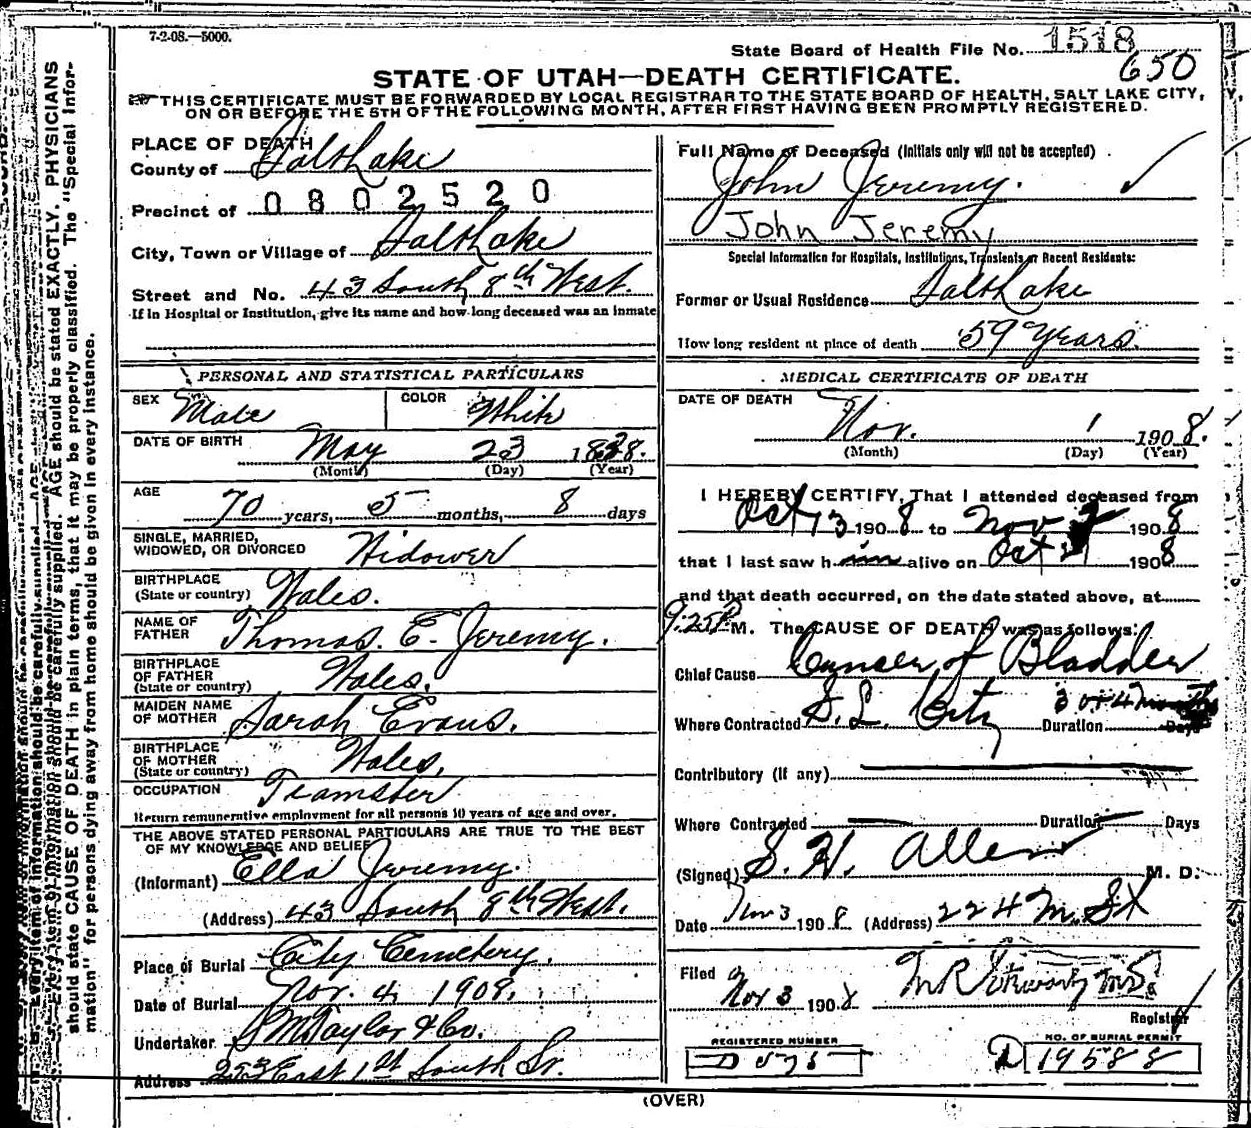 7-2-08.—5000.
State Board of Health File No. 1518
650
STATE OF UTAH—DEATH CERTIFICATE.
THIS CERTIFICATE MUST BE FORWARDED BY LOCAL REGISTRAR TO THE STATE BOARD OF HEALTH, SALT LAKE CITY,
ON OR BEFORE THE 5TH OF THE FOLLOWING MONTH, AFTER FIRST HAVING BEEN PROMPTLY REGISTERED.
PLACE OF DEATH
County of Salt Lake
Precinct of 0802520
City, Town or Village of Salt Lake
Street and No. 43 South 8th West.
If in Hospital or Institution, give its name and how long deceased was an inmate
PERSONAL AND STATISTICAL PARTICULARS
SEX Male COLOR White
DATE OF BIRTH May 23 1838.
(Month) (Day) (Year)
AGE 70 years, 5 months, 8 days
SINGLE, MARRIED,
WIDOWED, OR DIVORCED Widower
BIRTHPLACE
(State or country) Wales.
NAME OF
FATHER Thomas. E. Jeremy.
BIRTHPLACE
OF FATHER
(State or country) Wales.
MAIDEN NAME
OF MOTHER Sarah Evans.
BIRTHPLACE
OF MOTHER
(State or country) Wales.
OCCUPATION Teamster
Return remunerative employment for all persons 10 years of age and over.
THE ABOVE STATED PERSONAL PARTICULARS ARE TRUE TO THE BEST
OF MY KNOWLEDGE AND BELIEF
(Informant) Ella Jeremy.
(Address) 43 South 8th West.
Place of Burial City Cemetery.
Date of Burial Nov. 4, 1908.
Undertaker S M Taylor & Co.
Address 253 East 1st South St.
Full Name of Deceased (Initials only will not be accepted)
John Jeremy.
John Jeremy
Special Information for Hospitals, Institutions, Transients or Recent Residents:
Former or Usual Residence Salt Lake
How long resident at place of death 59 Years.
MEDICAL CERTIFICATE OF DEATH
DATE OF DEATH
Nov. 1 1908.
(Month) (Day) (Year)
I HEREBY CERTIFY, That I attended deceased from
Oct 13 1908 to Nov 1908
that I last saw him alive on Oct 1908
and that death occurred, on the date stated above, at
9:25 P. M. The CAUSE OF DEATH was as follows:
Chief Cause Cancer of Bladder
Where Contracted S. L. City Duration 3 or 4 months Days
Contributory (if any)
Where Contracted Duration Days
(Signed) S. H. Allen M. D.
Date Nov 3 1908 (Address) 224 M. St
Filed
Nov 3 1908
Registrar
REGISTERED NUMBER
NO. OF BURIAL PERMIT
D 19588
(OVER)
should state CAUSE OF DEATH in plain terms, that it may be properly classified. The "Special Infor-
mation" for persons dying away from home should be given in every instance.